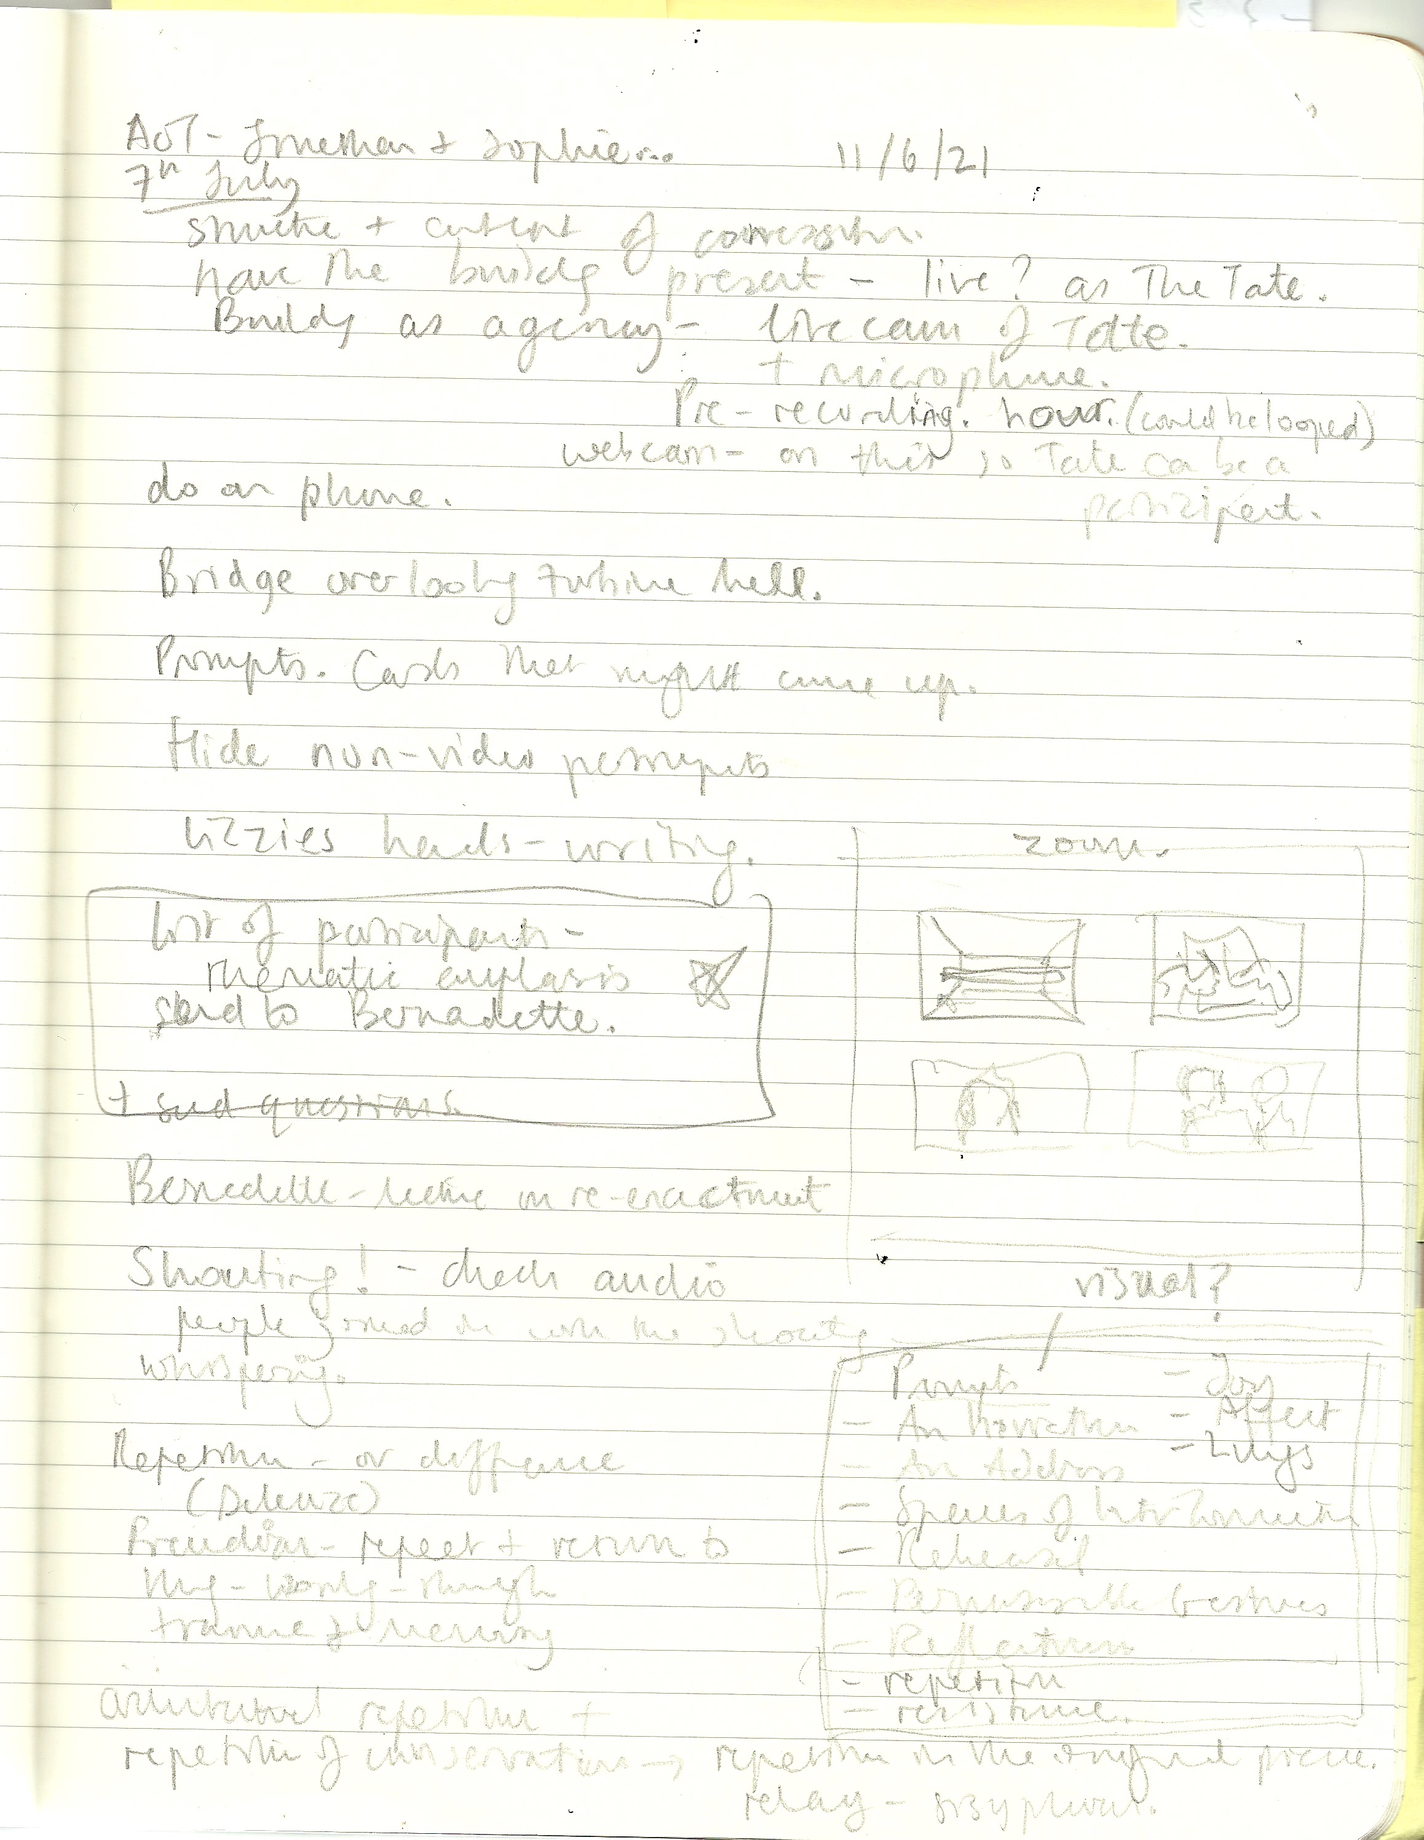 AOT - Jonathan + Sophie...
11/6/21
7th July
structure + content of conversation.
have the building present - live? as The Tate.
Building as agency - live cam of Tate.
+ microphone.
Pre-recording. hour. (could be looped)
webcam - on this so Tate can be a
participant.
do on phone.
Bridge overlooking turbine hall.
Prompts. Cards that might come up.
Hide non-video
Lizzies hands - writing.
zoom.
List of participants -
thematic emphasis
send to Bernadette.
+ send questions
Bernadette - lecture on re-enactment
Shouting! - check audio
people joined in with the shouting
whispering.
visual?
Prompts
- An
- An Address
- Spaces of
- Rehearsal
- Permissible Gestures
- Reflections
- repetition
- resistance.
- Joy
- Affect
- Lungs
Repetition - or difference
(Deleuze)
Freudian - repeat + return to
thing - working - through
trauma + memory
repetition +
repetition of conservation → repetition in the original piece.
relay -